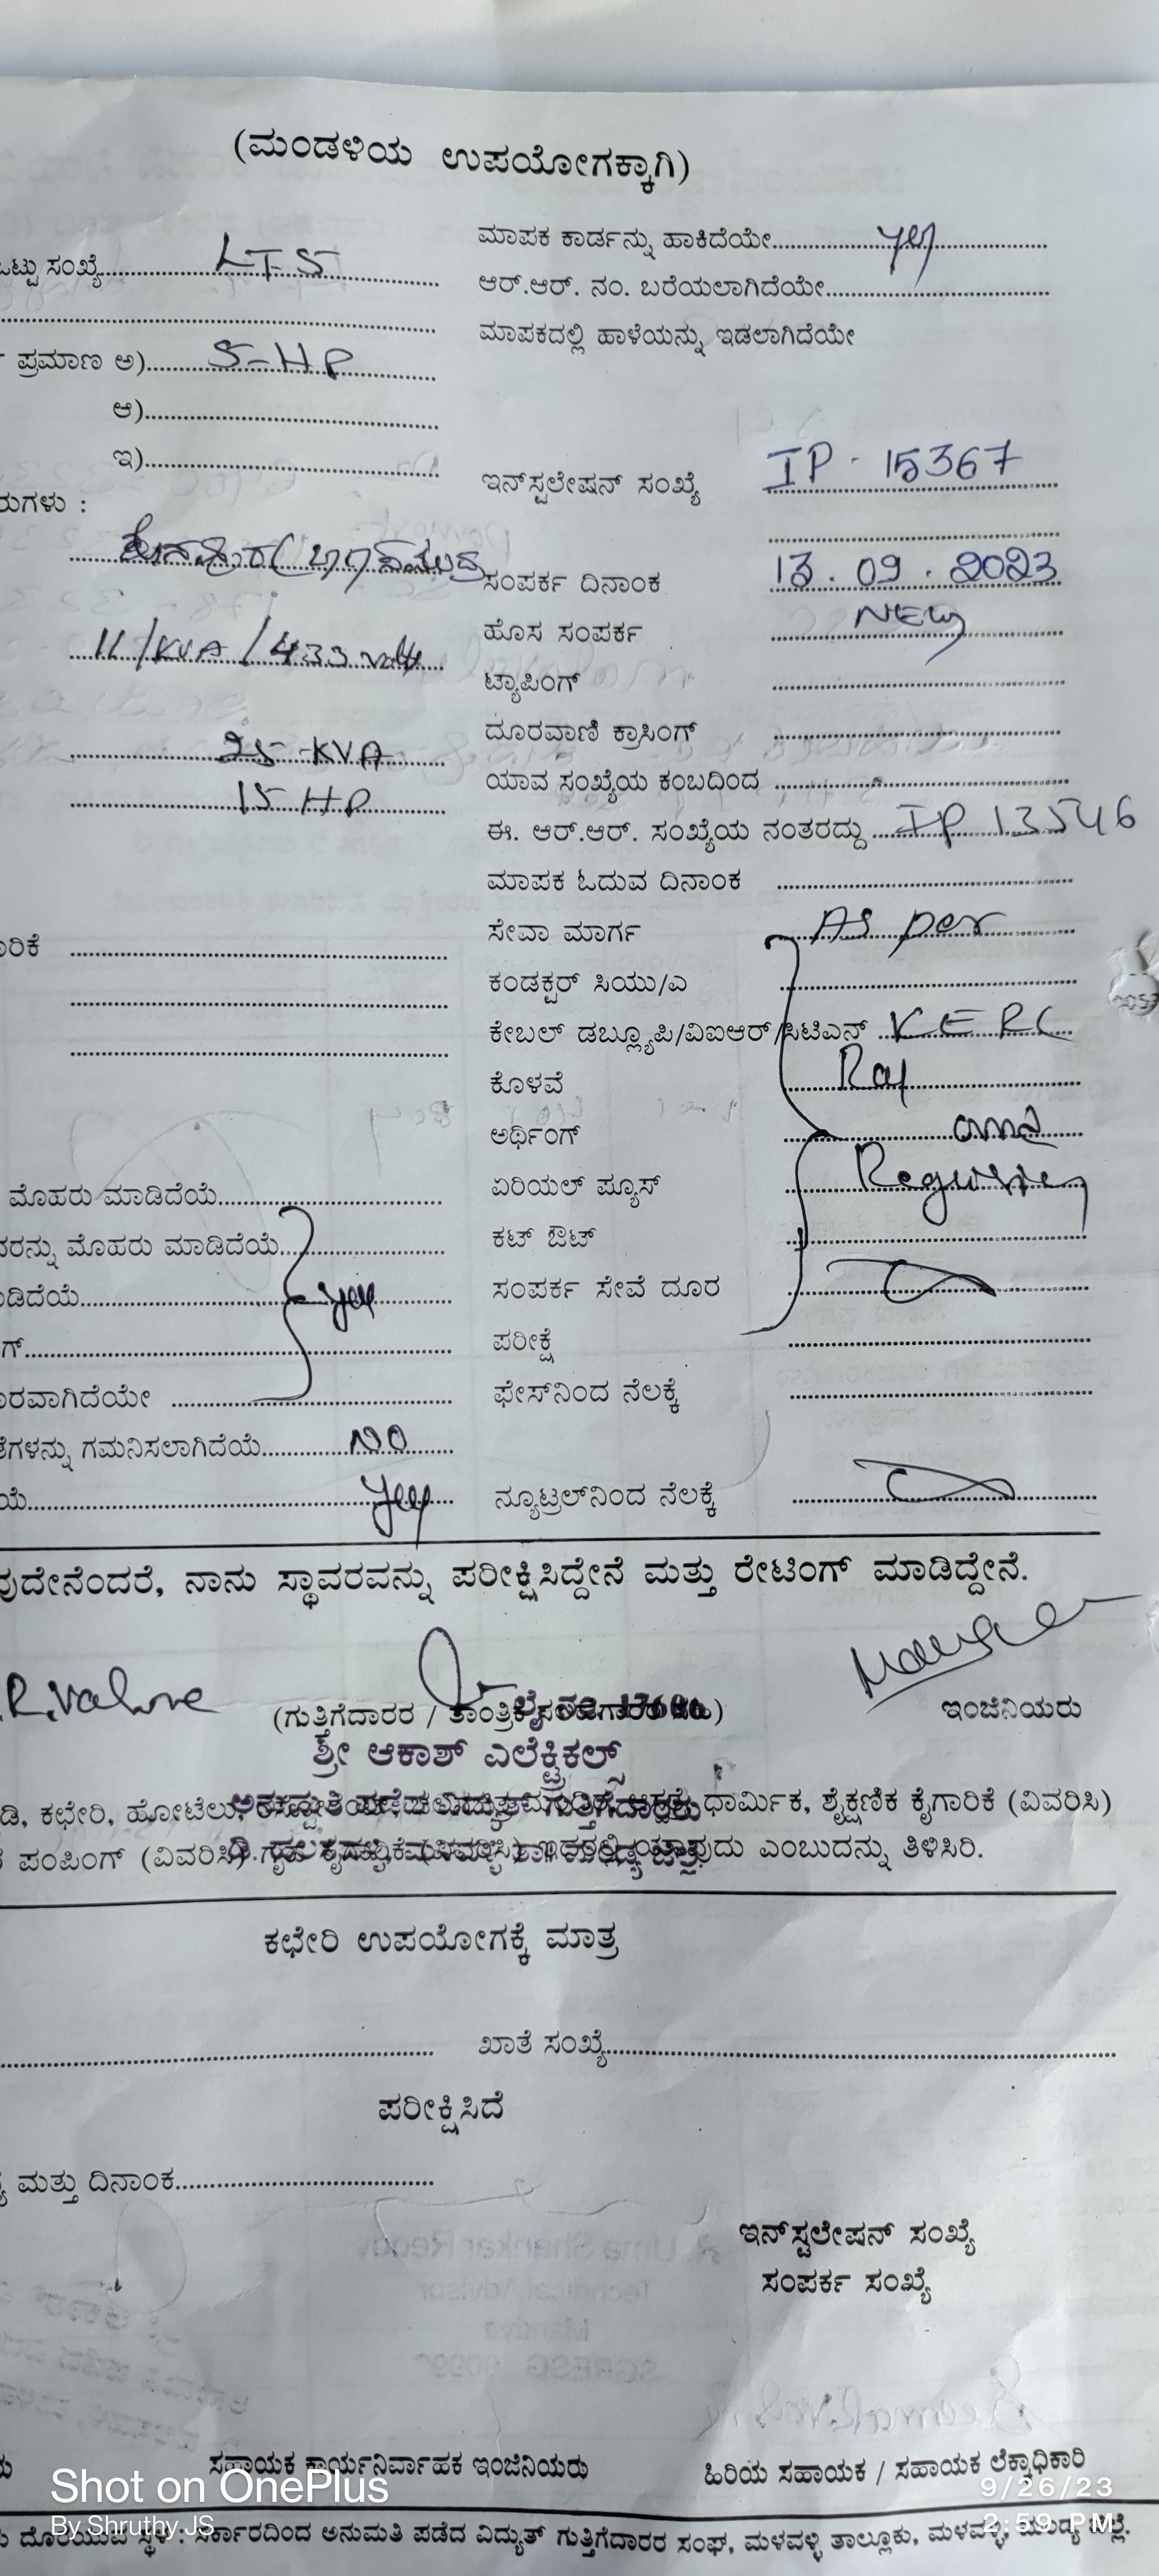 (ಮಂಡಳಿಯ ಉಪಯೋಗಕ್ಕಾಗಿ)
ಒಟ್ಟು ಸಂಖ್ಯೆ LT5
ಪ್ರಮಾಣ ಅ) 5-HP
ಆ)
ಇ)
ರುಗಳು :
11/KVA/433 volt
25-KVA
15 HP
ಾರಿಕೆ
ಮೊಹರು ಮಾಡಿದೆಯೆ
ವರನ್ನು ಮೊಹರು ಮಾಡಿದೆಯೆ
ಾಡಿದೆಯೆ yes
ಗ್
ಾರವಾಗಿದೆಯೇ
ತೆಗಳನ್ನು ಗಮನಿಸಲಾಗಿದೆಯೆ NO
ಯೆ yes
ಮಾಪಕ ಕಾರ್ಡನ್ನು ಹಾಕಿದೆಯೇ yes
ಆರ್.ಆರ್. ನಂ. ಬರೆಯಲಾಗಿದೆಯೇ
ಮಾಪಕದಲ್ಲಿ ಹಾಳೆಯನ್ನು ಇಡಲಾಗಿದೆಯೇ
ಇನ್‌ಸ್ಟಲೇಷನ್ ಸಂಖ್ಯೆ IP-15367
ಸಂಪರ್ಕ ದಿನಾಂಕ 13.09.2023
ಹೊಸ ಸಂಪರ್ಕ NEW
ಟ್ಯಾಪಿಂಗ್
ದೂರವಾಣಿ ಕ್ರಾಸಿಂಗ್
ಯಾವ ಸಂಖ್ಯೆಯ ಕಂಬದಿಂದ
ಈ. ಆರ್.ಆರ್. ಸಂಖ್ಯೆಯ ನಂತರದ್ದು IP 13546
ಮಾಪಕ ಓದುವ ದಿನಾಂಕ
ಸೇವಾ ಮಾರ್ಗ As per
ಕಂಡಕ್ಟರ್ ಸಿಯು/ಎ
ಕೇಬಲ್ ಡಬ್ಲ್ಯೂಪಿ/ವಿಐಆರ್/ಸಿಟಿಎನ್ KERC
ಕೊಳವೆ
ಅರ್ಥಿಂಗ್ and
ಏರಿಯಲ್ ಪ್ಯೂಸ್
ಕಟ್ ಔಟ್
ಸಂಪರ್ಕ ಸೇವೆ ದೂರ
ಪರೀಕ್ಷೆ
ಫೇಸ್‌ನಿಂದ ನೆಲಕ್ಕೆ
ನ್ಯೂಟ್ರಲ್‌ನಿಂದ ನೆಲಕ್ಕೆ
ವುದೇನೆಂದರೆ, ನಾನು ಸ್ಥಾವರವನ್ನು ಪರೀಕ್ಷಿಸಿದ್ದೇನೆ ಮತ್ತು ರೇಟಿಂಗ್ ಮಾಡಿದ್ದೇನೆ.
(ಗುತ್ತಿಗೆದಾರರ / ತಾಂತ್ರಿಕ
ಇಂಜಿನಿಯರು
ಶ್ರೀ ಆಕಾಶ್ ಎಲೆಕ್ಟ್ರಿಕಲ್ಸ್
ಡಿ, ಕಛೇರಿ, ಹೋಟೆಲು, ಧಾರ್ಮಿಕ, ಶೈಕ್ಷಣಿಕ ಕೈಗಾರಿಕೆ (ವಿವರಿಸಿ)
ಪಂಪಿಂಗ್ (ವಿವರಿಸಿ) ಎಂಬುದನ್ನು ತಿಳಿಸಿರಿ.
ಕಛೇರಿ ಉಪಯೋಗಕ್ಕೆ ಮಾತ್ರ
ಖಾತೆ ಸಂಖ್ಯೆ
ಪರೀಕ್ಷಿಸಿದೆ
ಮತ್ತು ದಿನಾಂಕ
ಇನ್‌ಸ್ಟಲೇಷನ್ ಸಂಖ್ಯೆ
ಸಂಪರ್ಕ ಸಂಖ್ಯೆ
ಸಹಾಯಕ ಕಾರ್ಯನಿರ್ವಾಹಕ ಇಂಜಿನಿಯರು
ಹಿರಿಯ ಸಹಾಯಕ / ಸಹಾಯಕ ಲೆಕ್ಕಾಧಿಕಾರಿ
Shot on OnePlus
By Shruthy JS
9/26/23
2:59 PM
ದೊರೆಯುವ ಸ್ಥಳ : ಸರ್ಕಾರದಿಂದ ಅನುಮತಿ ಪಡೆದ ವಿದ್ಯುತ್ ಗುತ್ತಿಗೆದಾರರ ಸಂಘ, ಮಳವಳ್ಳಿ ತಾಲ್ಲೂಕು, ಮಳವಳ್ಳಿ,